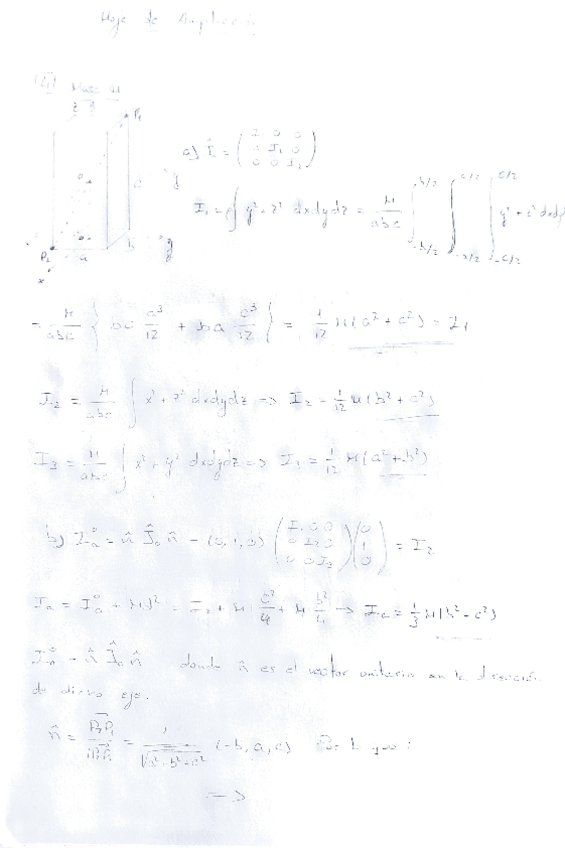 Hoja de Ampliación
Masa M
P₁
c
y
a
b
P₂
x
a) Î = ( I₁ 0 0 / 0 I₂ 0 / 0 0 I₃ )
I₁ = ∫ y² + z² dxdydz = M/abc ∫_{-b/2}^{b/2} ∫_{-a/2}^{a/2} ∫_{-c/2}^{c/2} y² + z² dxdy
= M/abc { bc a³/12 + ba c³/12 } = 1/12 M(a² + c²) = I₁
I₂ = M/abc ∫ x² + z² dxdydz => I₂ = 1/12 M(b² + c²)
I₃ = M/abc ∫ x² + y² dxdydz => I₃ = 1/12 M(a² + b²)
b) I_a⁰ = n̂ Î₀ n̂ = (0, 1, 0) ( I₁ 0 0 / 0 I₂ 0 / 0 0 I₃ ) ( 0 / 1 / 0 ) = I₂
I_a = I_a⁰ + Md² = I₂ + M c²/4 + M b²/4 → I_a = 1/3 M(b² + c²)
n̂ Î₀ n̂ donde n̂ es el vector unitario en la dirección
de dicho eje.
n̂ = P₂P₁/|P₂P₁| = 1/√(a² + b² + c²) (-b, a, c) Por lo que:
=>